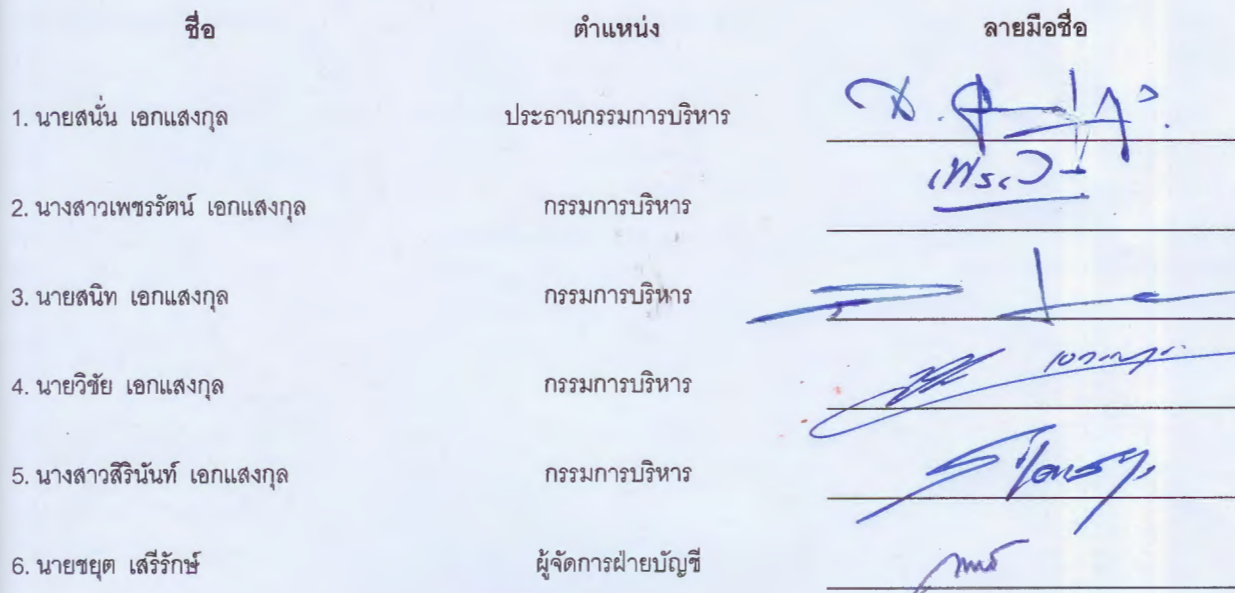 ชื่อ ตำแหน่ง ลายมือชื่อ
1. นายสนั่น เอกแสงกุล ประธานกรรมการบริหาร
2. นางสาวเพชรรัตน์ เอกแสงกุล กรรมการบริหาร
3. นายสนิท เอกแสงกุล กรรมการบริหาร
4. นายวิชัย เอกแสงกุล กรรมการบริหาร
5. นางสาวสิรินันท์ เอกแสงกุล กรรมการบริหาร
6. นายชยุต เสรีรักษ์ ผู้จัดการฝ่ายบัญชี